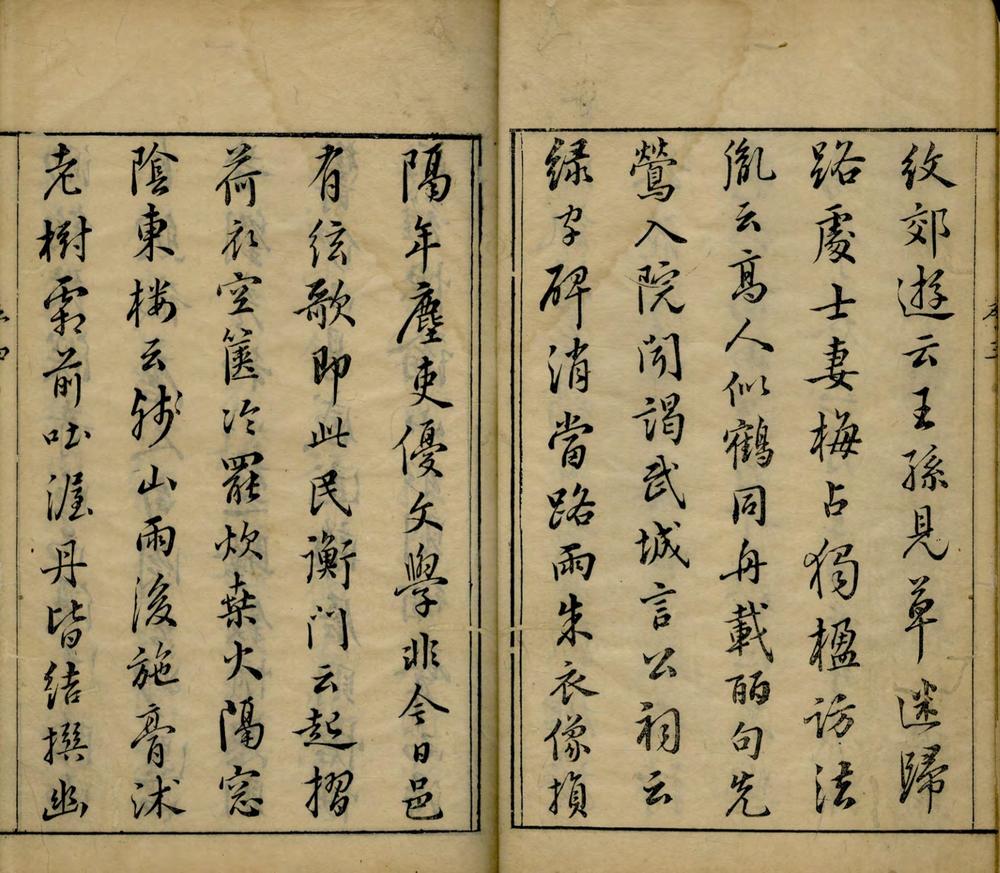 紋郊遊云王孫見草迷歸
路處士妻梅占獨楹訪法
胤云高人似鶴同舟載酾句先
鶯入院聞謁武城言公祠云
緑字碑消當路雨朱衣像損
隔年塵吏優文學非今日邑
有弦歌即此民衡門云起摺
荷衣空篋冷罷炊桑火隔窓
陰東樓云殘山雨後施膏沐
老樹霜前吐渥丹皆結撰幽